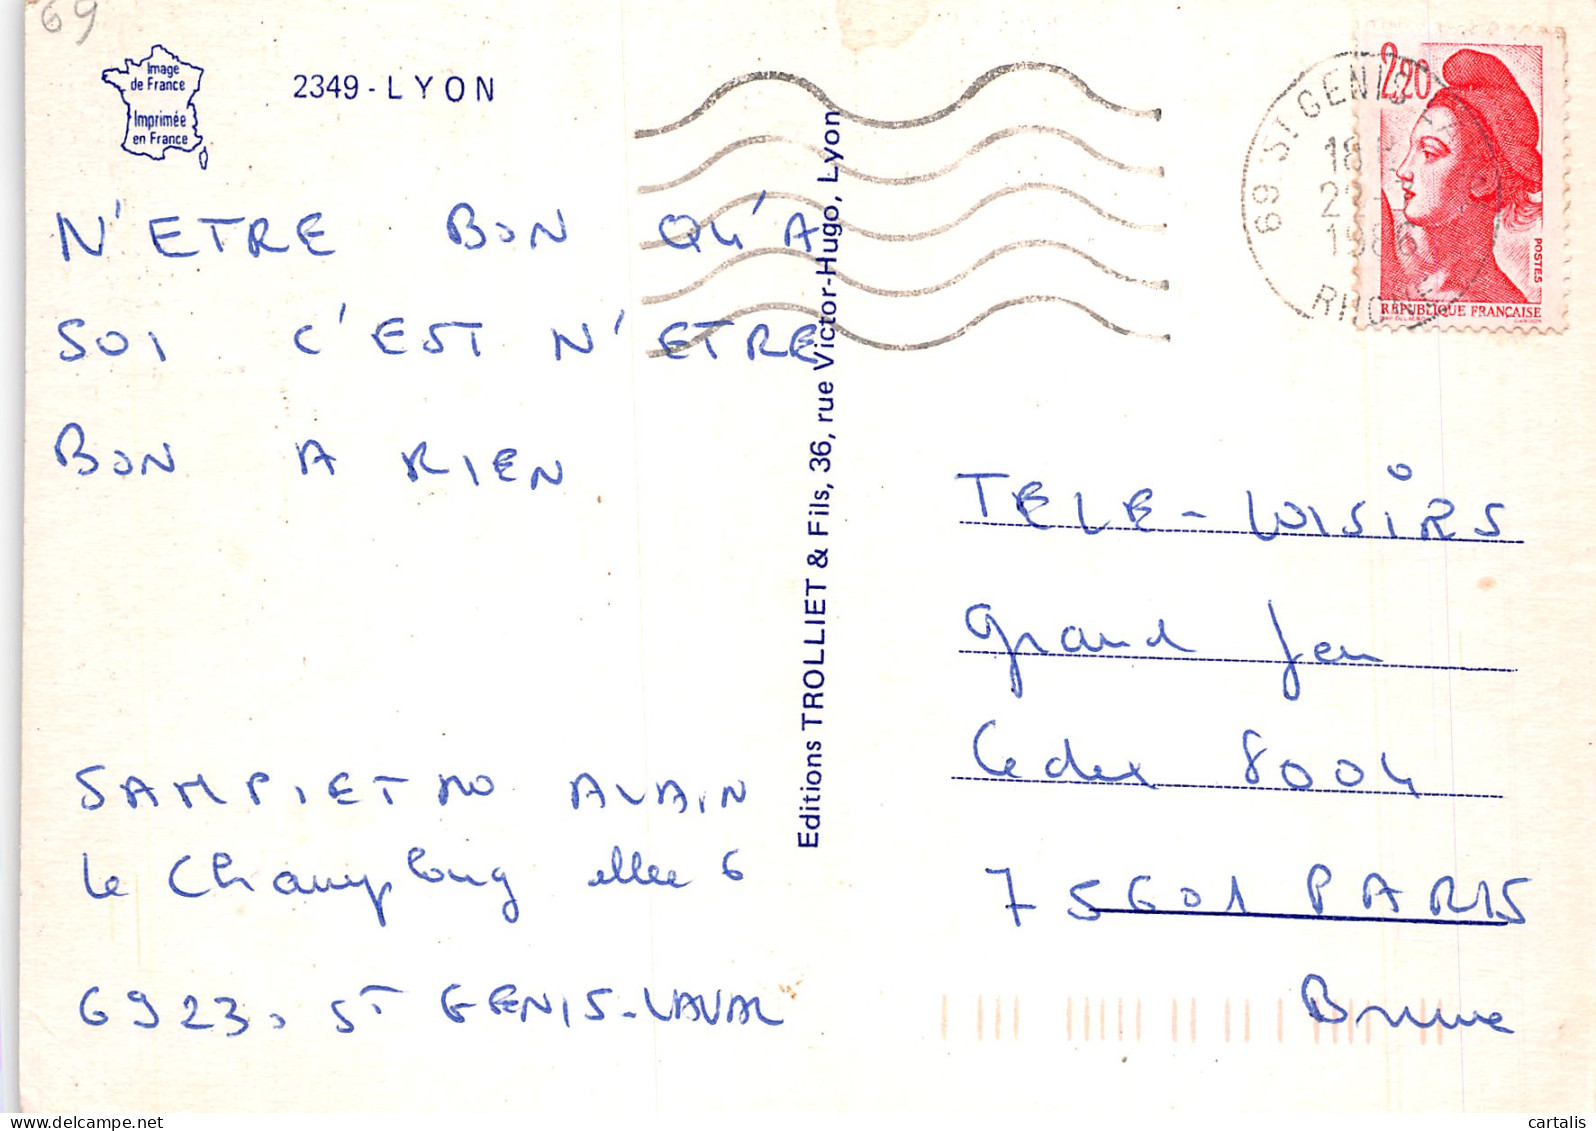 69
Image
de France
Imprimée
en France
2349 - LYON
N'ETRE BON QU'A
SOI C'EST N'ETRE
BON A RIEN
SAMPIETRO ALAIN
Le Champlong allee 6
69230 ST GENIS-LAVAL
Editions TROLLIET & Fils, 36, rue Victor-Hugo, Lyon
69 ST GENIS
18 H
22
1986
RHONE
2,20
POSTES
REPUBLIQUE FRANÇAISE
TELE-LOISIRS
Grand Jeu
Cedex 8004
75601 PARIS
Brune
cartalis